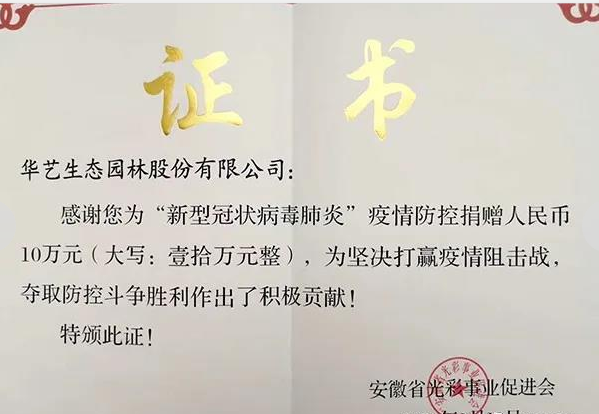 证书
华艺生态园林股份有限公司：
感谢您为“新型冠状病毒肺炎”疫情防控捐赠人民币
10万元（大写：壹拾万元整），为坚决打赢疫情阻击战，
夺取防控斗争胜利作出了积极贡献！
特颁此证！
安徽省光彩事业促进会